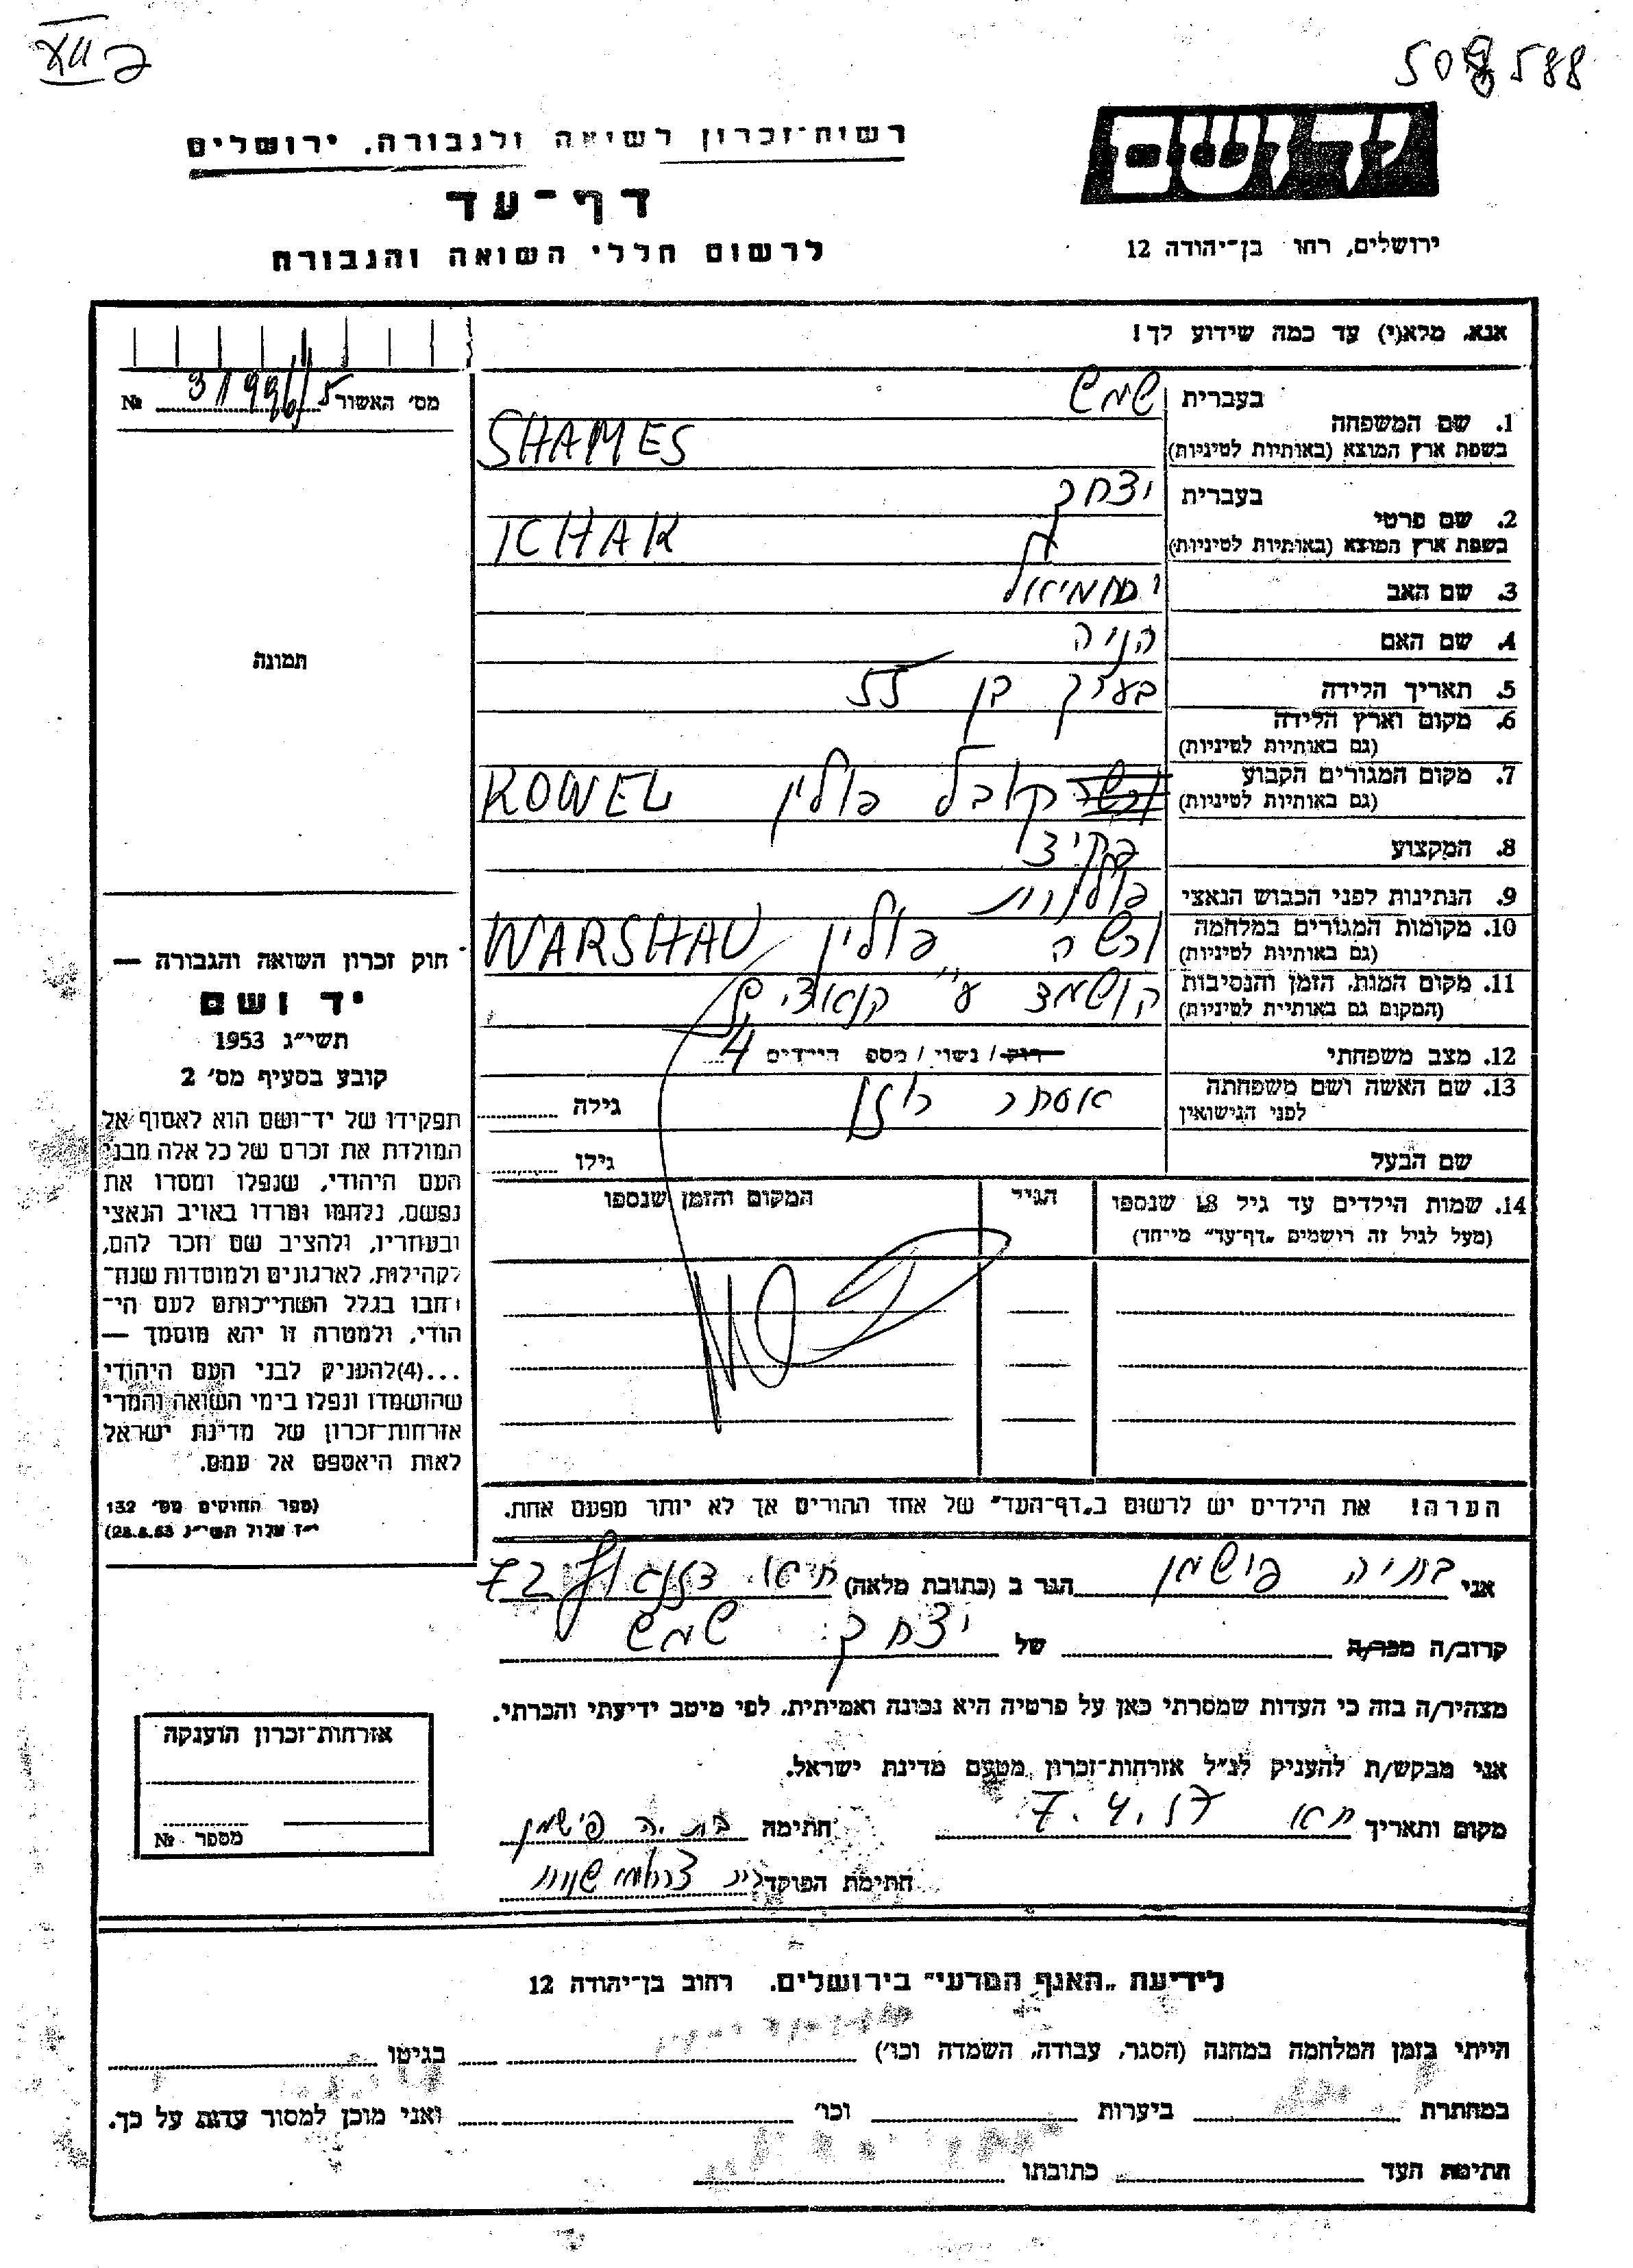 508588
יד ושם
רשות־זכרון לשואה ולגבורה, ירושלים
דף־עד
לרשום חללי השואה והגבורה
ירושלים, רחו בן־יהודה 12
אנא, מלא(י) עד כמה שידוע לך!
מס׳ האשור № 31996/5
1. שם המשפחה בעברית שמש
בשפת ארץ המוצא (באותיות לטיניות) SHAMES
2. שם פרטי בעברית יצחק
בשפת ארץ המוצא (באותיות לטיניות) ICHAK
3. שם האב ירחמיאל
4. שם האם הניה
5. תאריך הלידה בערך בן 55
6. מקום וארץ הלידה
(גם באותיות לטיניות)
7. מקום המגורים הקבוע קובל פולין KOWEL
(גם באותיות לטיניות)
8. המקצוע פקיד
9. הנתינות לפני הכבוש הנאצי פולנית
10. מקומות המגורים במלחמה ורשה פולין WARSHAU
(גם באותיות לטיניות)
11. מקום המות, הזמן והנסיבות הושמד ע״י הנאצים
(המקום גם באותיית לטיניות)
12. מצב משפחתי רוק / נשוי / מספ הילדים 4
13. שם האשה ושם משפחתה אסתר רוזן גילה
לפני הנישואין
שם הבעל גילו
14. שמות הילדים עד גיל 18 שנספו הגיל המקום והזמן שנספו
(מעל לגיל זה רושמים „דף־עד״ מייחד)
תמונה
חוק זכרון השואה והגבורה —
יד ושם
תשי״ג 1953
קובע בסעיף מס׳ 2
תפקידו של יד־ושם הוא לאסוף אל
המולדת את זכרם של כל אלה מבני
העם היהודי, שנפלו ומסרו את
נפשם, נלחמו ומרדו באויב הנאצי
ובעוזריו, ולהציב שם וזכר להם,
לקהילות, לארגונים ולמוסדות שנח־
רבו בגלל השתייכותם לעם הי־
הודי, ולמטרה זו יהא מוסמך —
...(4)להעניק לבני העם היהודי
שהושמדו ונפלו בימי השואה והמרי
אזרחות־זכרון של מדינת ישראל
לאות היאספם אל עמם.
(ספר החוקים מס׳ 132
י״ז אלול תשי״ג 28.8.53)
הערה! את הילדים יש לרשום ב„דף־העד״ של אחד ההורים אך לא יותר מפעם אחת.
אני בתיה פישמן הגר ב (כתובת מלאה) חיפה 72
קרוב/ה מכר/ה של יצחק שמש
מצהיר/ה בזה כי העדות שמסרתי כאן על פרטיה היא נכונה ואמיתית, לפי מיטב ידיעתי והכרתי.
אני מבקש/ת להעניק לנ״ל אזרחות־זכרון מטעם מדינת ישראל.
מקום ותאריך 7.4.57 חתימה בתיה פישמן
חתימת הפוקד
אזרחות־זכרון הוענקה
מספר №
לידיעת „האגף המדעי״ בירושלים. רחוב בן־יהודה 12
הייתי בזמן המלחמה במחנה (הסגר, עבודה, השמדה וכו׳) בגיטו
במחתרת ביערות וכו׳ ואני מוכן למסור עדות על כך.
חתימת העד כתובתו